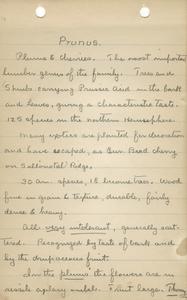 Prunus.
Plums & cherries. The most important
timber genus of the family. Trees and
Shrubs carrying Prussic acid in the bark
and leaves, giving a characteristic taste.
125 species in the northern hemisphere.
Many exotics are planted for decoration
and have escaped, as Gum Bead cherry
on Sellonatal Ridge.
30 am. species, 18 become trees. Wood
fine in grain & texture, durable, fairly
dense & heavy.
All very intolerant, generally scat-
tered. Recognized by taste of bark and
by the drupaceous fruit.
In the plums the flowers are in
sessile axillary umbels. Fruit large.